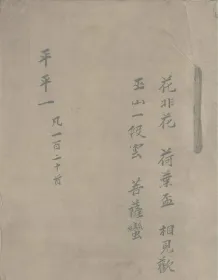 花非花 荷葉盃 相見歡
巫山一段雲 菩薩蠻
平平一 凡一百二十首